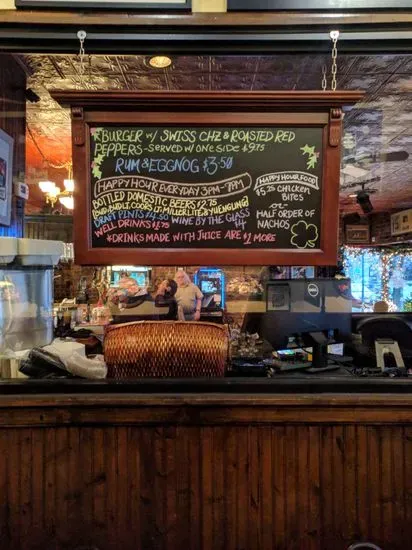 BURGER W/ SWISS CHZ & ROASTED RED
PEPPERS - SERVED W/ ONE SIDE $9.75
RUM & EGGNOG $3.50
HAPPY HOUR EVERYDAY 3PM-7PM
BOTTLED DOMESTIC BEERS $2.75
(BUD, BUDLT, COORS LT, MILLER LITE & YUENGLING)
DRAFT PINTS $4.50 WINE BY THE GLASS
$4
WELL DRINKS $2.75
*DRINKS MADE WITH JUICE ARE $1 MORE
HAPPY HOUR FOOD
$5.25 CHICKEN
BITES
OR
HALF ORDER OF
NACHOS
DELL